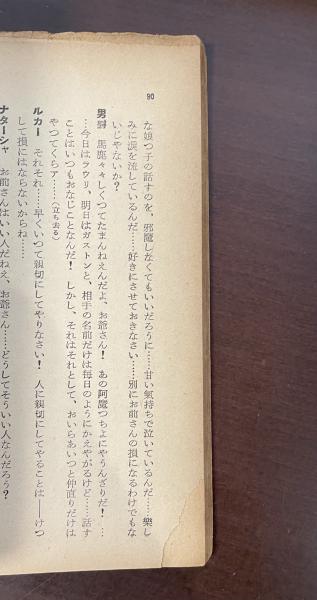 90
な娘つ子の話すのを、邪魔しなくてもいいだろうに……甘い氣持ちで泣いているんだ……樂し
みに涙を流しているんだ……好きにさせておきなさい……別にお前さんの損になるわけでもな
いじやないか？
男爵　馬鹿々々しくつてたまんねえんだよ、お爺さん！　あの阿魔つちよにやうんざりだ！…
…今日はラウリ、明日はガストンと、相手の名前だけは毎日のようにかえやがるけど……話す
ことはいつもおなじことなんだ！　しかし、それはそれとして、おいらあいつと仲直りだけは
やつてくらア……（立ち去る）
ルカー　それそれ……早くいつて親切にしてやりなさい！　人に親切にしてやることは――けつ
して損にはならないからね……
ナターシャ　お前さんはいい人だねえ、お爺さん……どうしてそういい人なんだろう？